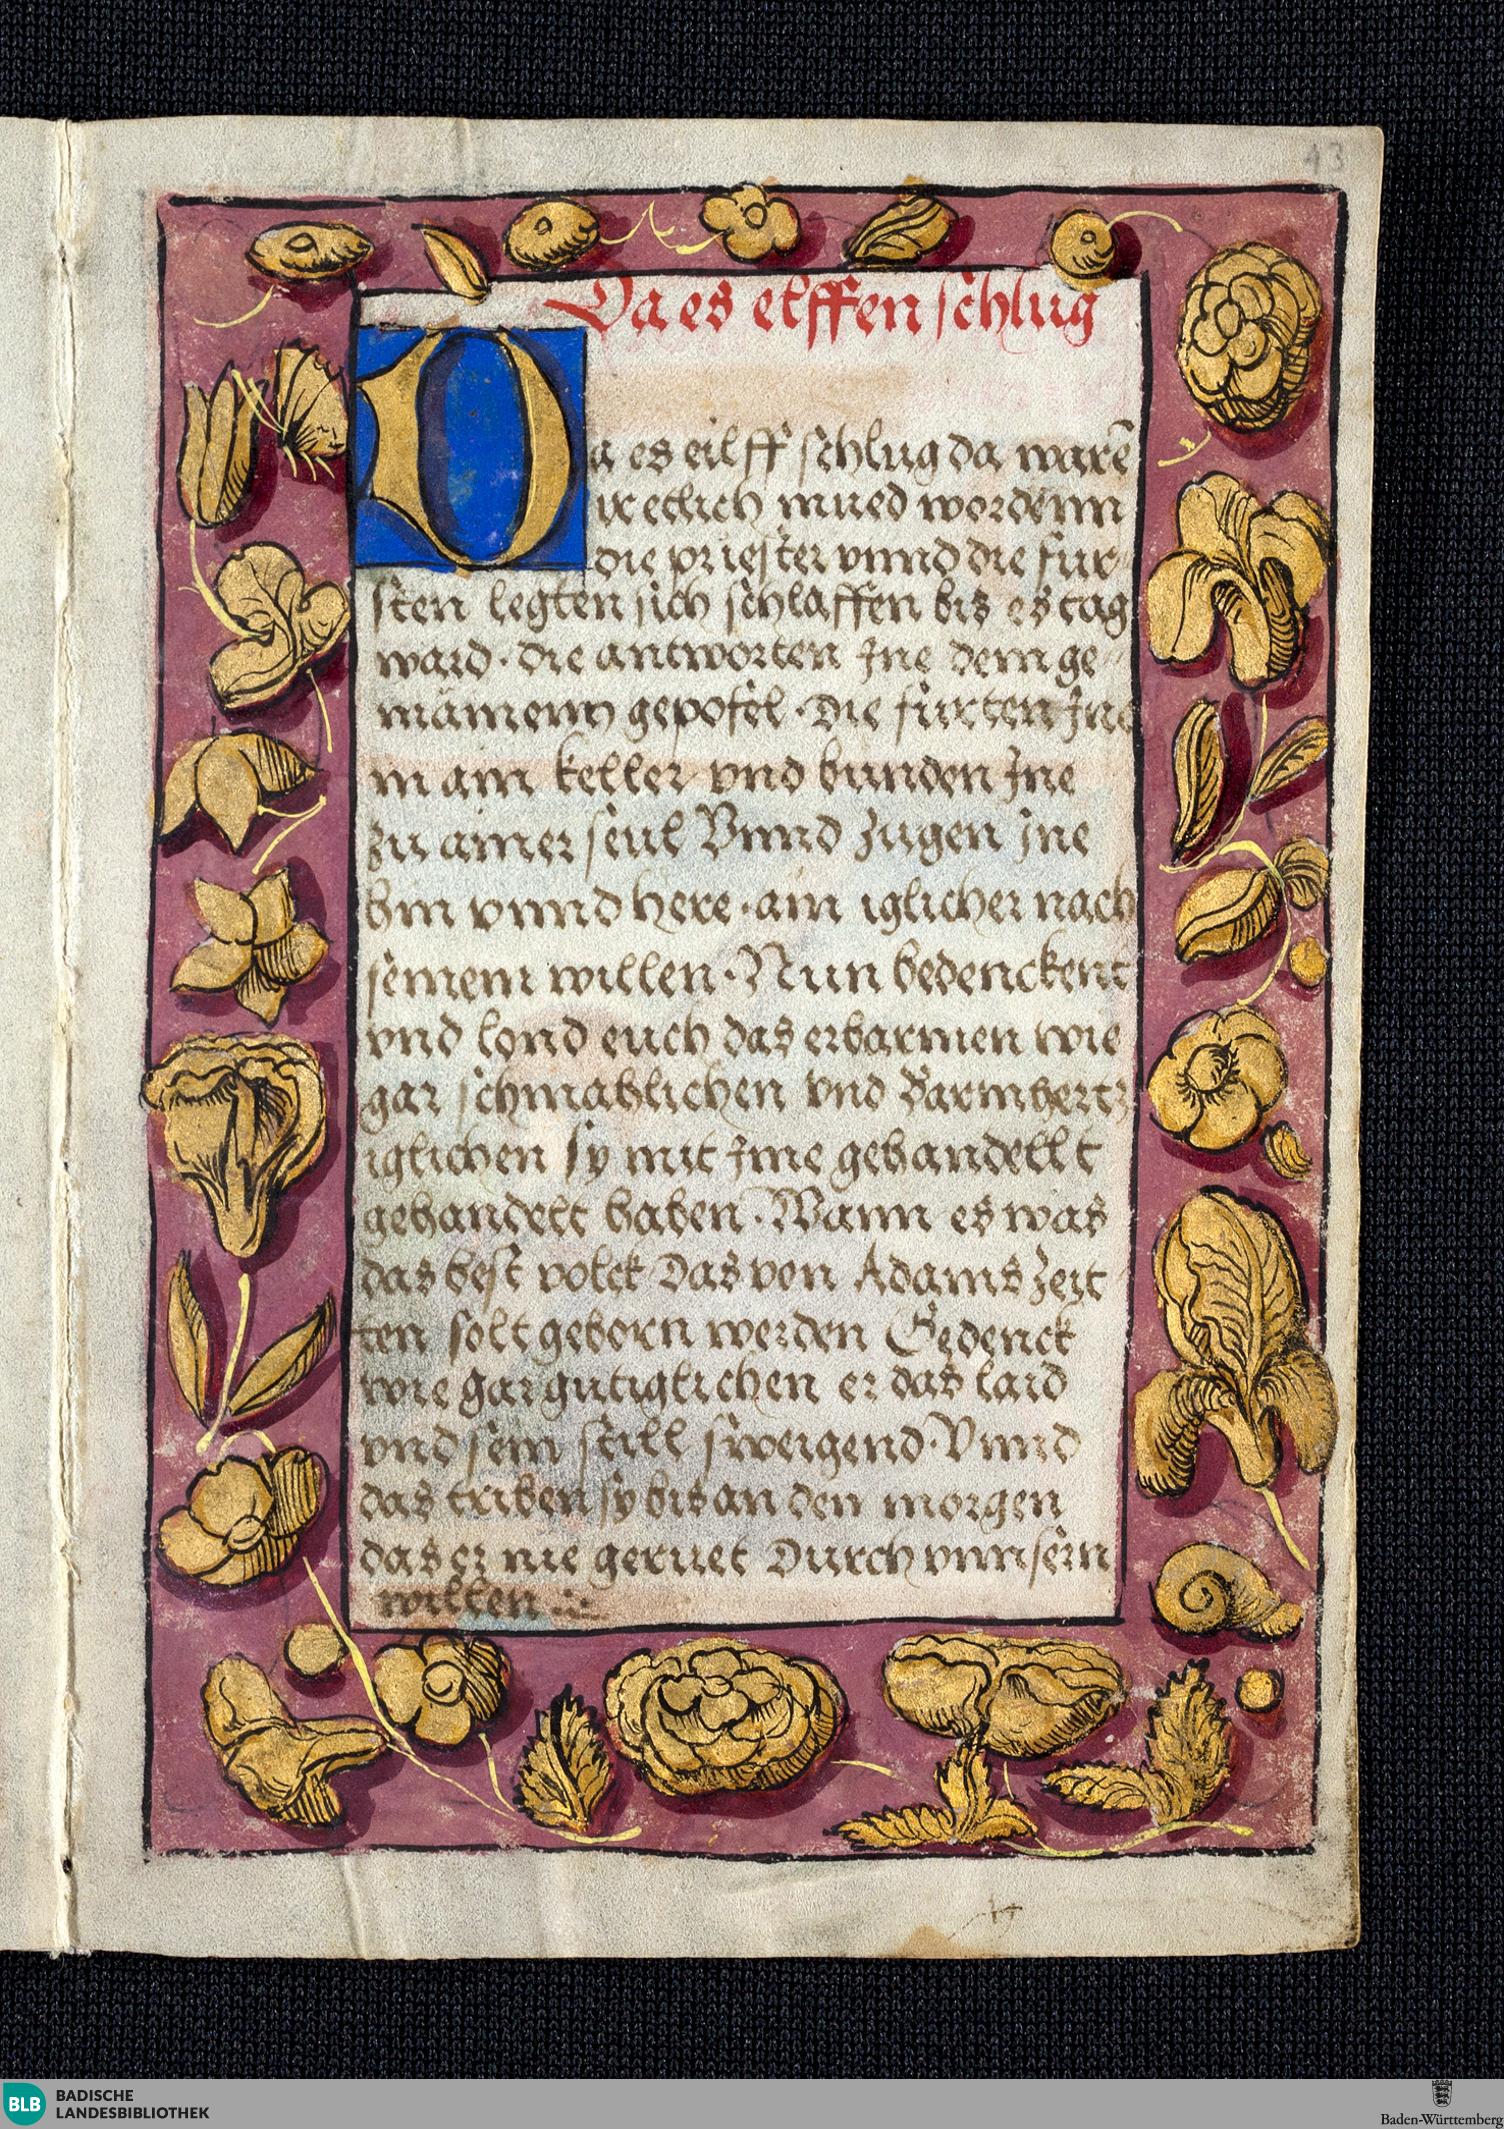 43
Da es elffen schlug
Da es eilff schlug da warē
ir etlich mued wordenn
die priester vnnd die fur-
sten legten sich schlaffen bis es tag
ward · die antworten Jne dem ge-
mainenn gepofel · Die fürten Jne
in ain keller vnd bunden Jne
zu ainer seul Vnnd Zugen Jne
hin vnnd here · ain iglicher nach
seinem willen · Nun bedenckent
vnd lond euch das erbarmen wie
gar schmahlichen vnd
iglichen sy mit Jme gehandellt
gehandelt haben · Wann es was
das best volck Das von Adams Zeit
ten solt geborn werden Gedenck
wie gar gutiglichen er das laid
vnd sein still sweigend · Vnnd
das triben sy bis an den morgen
das er nie geruet Durch vnnsern
willen
BLB BADISCHE
LANDESBIBLIOTHEK
Baden-Württemberg